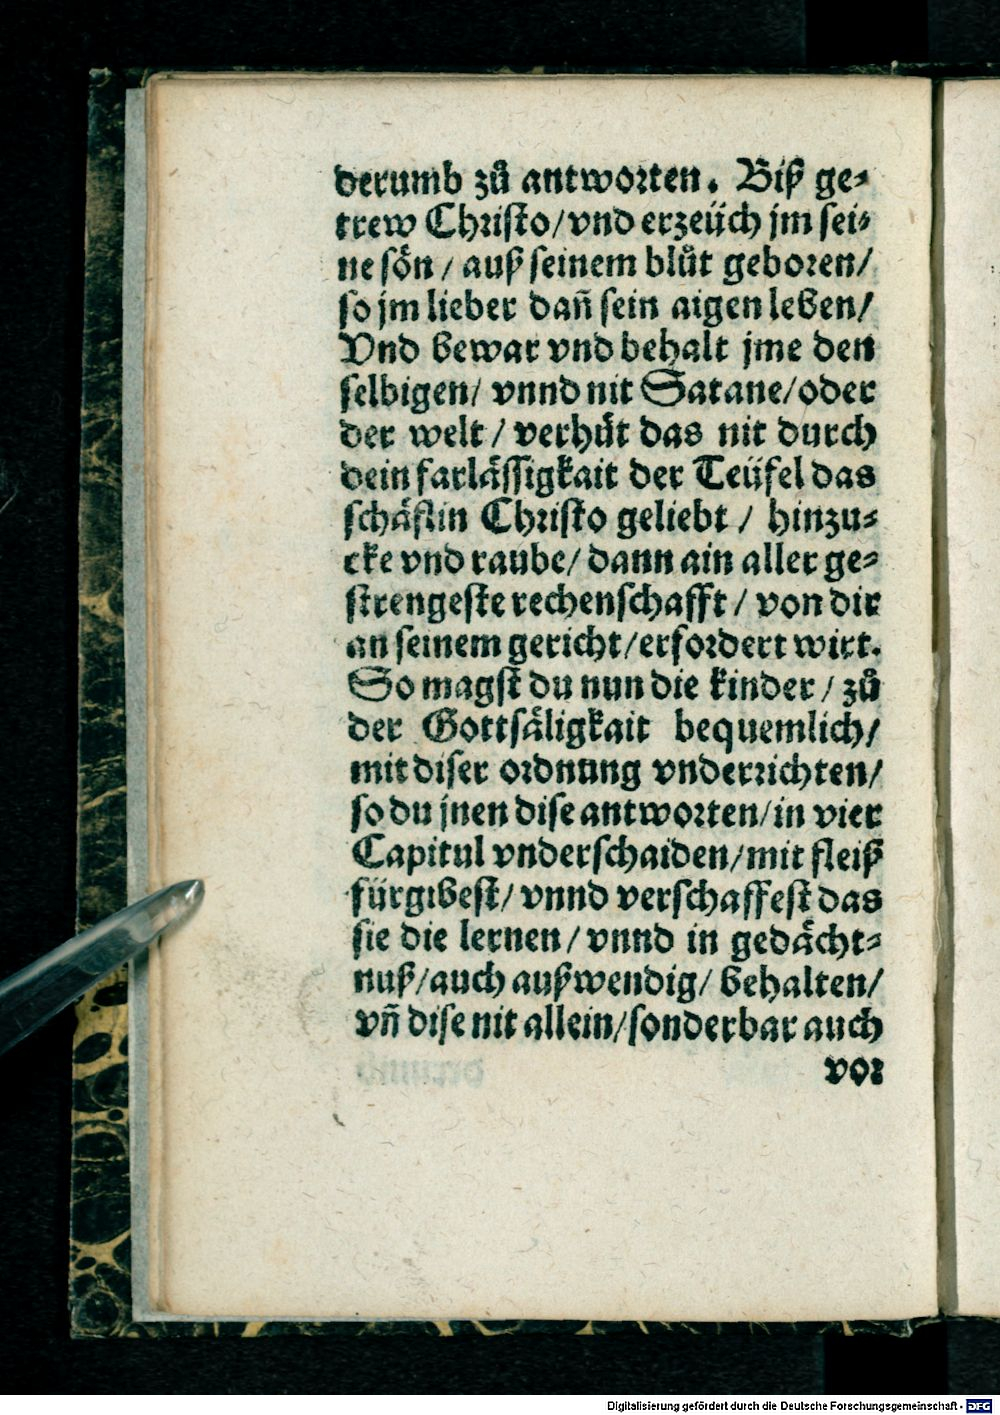 derumb zů antworten. Biß ge⸗
trew Christo/vnd erzeüch jm sei⸗
ne sön / auß seinem blůt geboren/
so jm lieber dañ sein aigen leben/
Vnd bewar vnd behalt jme den
selbigen/ vnnd nit Satane/oder
der welt / verhüt das nit durch
dein farlässigkait der Teüfel das
schäflin Christo geliebt / hinzu⸗
cke vnd raube/ dann ain aller ge⸗
strengeste rechenschafft / von dir
an seinem gericht/erfordert wirt.
So magst du nun die kinder / zů
der Gottsäligkait bequemlich/
mit diser ordnung vnderrichten/
so du jnen dise antworten/in vier
Capitul vnderschaiden/mit fleiß
fürgibest/ vnnd verschaffest das
sie die lernen / vnnd in gedächt⸗
nuß/auch außwendig/ behalten/
vñ dise nit allein/sonderbar auch
vor
Digitalisierung gefördert durch die Deutsche Forschungsgemeinschaft - DFG